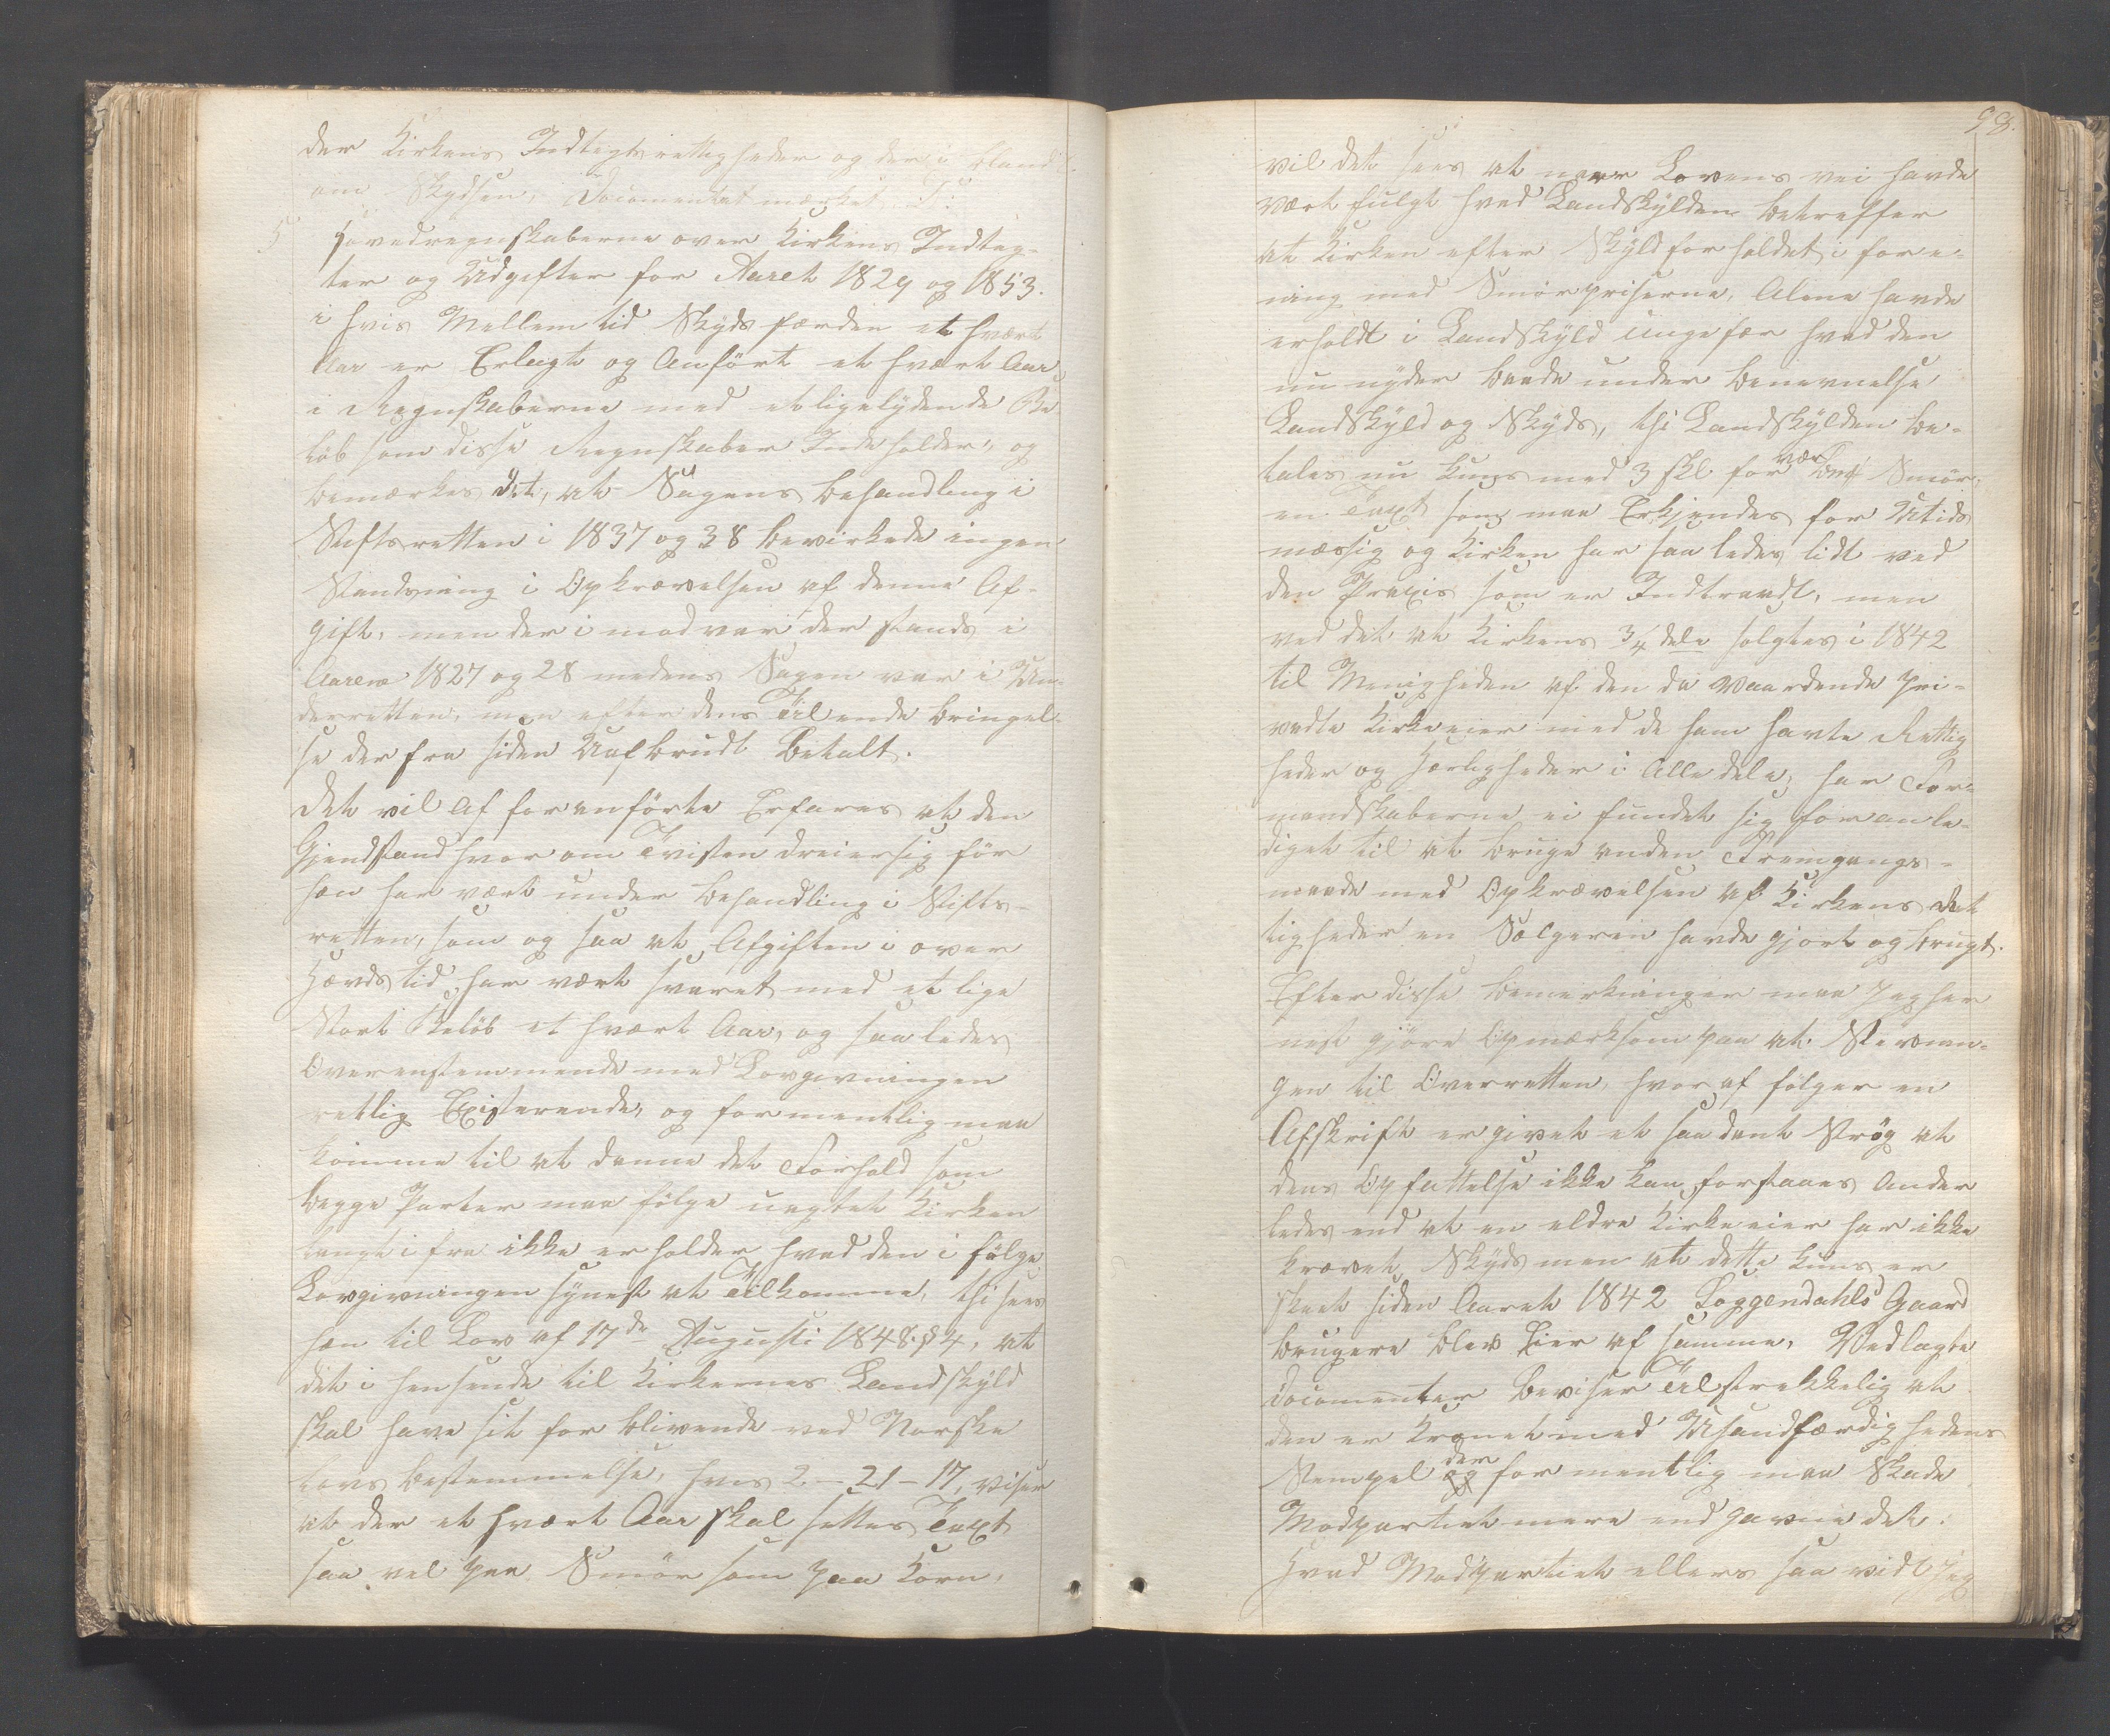 der Kirkens Indtegtsrettigheder og deri bland
om Skydsen, Documentet mærket T:
5 Hovedregnskaberne over Kirkens Indteg-
ter og Udgifter for Aaret 1829 og 1853.
i hvis Mellemtid Skydsfærden et hvert
Aar er Erlagt og Anført et hvert Aar
i Regnskaberne med et ligelydende Be
løb som disse Regnskaber Indeholder, og
bemærkes det, at Sagens behandling i
Stiftsretten i 1837 og 38 bevirkede ingen
Standsning i Opkrævelsen af denne Af-
gift, men derimod var der stands i
Aarene 1827 og 28 medens Sagen var i Un-
derretten, men efter dens Tilendebringel-
se derfra siden Uafbrudt Betalt.
Det vil af foranførte Erfares at den
Gjendstand hvorom Tvisten dreier sig før
hen har vært under behandling i Stifts-
retten, som og saa at Afgiften i over
Hævdstid har vært svaret med et lige
Stort Beløb et hvært Aar, og saaledes
Overenstemmende med Lovgivningen
retlig Existerende, og formentlig maa
komme til at danne det Forhold som
begge Parter maa følge uagtet Kirken
langt i fra ikke erholder hvad den i følge
Lovgivningen synest at Tilkomme, thi sees
hen til Lov af 17de Augusti 1848 § 4, at
det i hensende til Kirkernes Landskyld
skal have sit forblivende ved Norske
lovs bestemmelse, hvis 2-21-17, viser
at der et hvært Aar skal settes Taxt
saa vel paa Smør som paa Korn,
98.
vil det sees at naar Lovens vei havde
vært fulgt hvad Landskylden betreffer
at Kirken efter Skyldforholdet i fore-
ning med Smørpriserne, Alene havde
erholdt i Landskyld ungefær hvad den
nu nyder baade under benevnelse
Landskyld og Skyds, thi Landskylden be-
tales nu kuns med 3 skl for vær Smør,
en Taxt som maa Erkjendes for Utids
mæssig og Kirken har saaledes lidt ved
den Praxis som er Indtraadt, men
ved det at Kirkens 3/4 dele solgtes i 1842
til Menigheden af den da værende pri-
vadte Kirkeeier med de ham havte Rettig
heder og Herligheder i Alle dele, har For-
mandskaberne ei fundet sig foranle-
diget til at bruge anden Fremgangs-
maade med Opkrævelsen af Kirkens Ret
tigheder en Sælgeren havde gjort og brugt.
Efter disse bemerkninger maa jeg her
nest gjøre Opmærksom paa at Stevnin-
gen til Overretten, hvoraf følger en
Afskrift er givet et saadant Strøg at
dens Opfattelse ikke kan forstaaes Ander
ledes end at en eldre Kirkeeier har ikke
krævet Skyds men at dette kuns er
skeet siden Aaret 1842 Loggendahls Gaard
brugere blev Eier af samme, Vedlagte
documenter beviser Tilstrekkelig at
den er Kronet med Usandfærdighedens
Stempel der formentlig maa Skade
Modpartiet mere end gavne det.
Hvad Modpartiet ellers saa vidt jeg